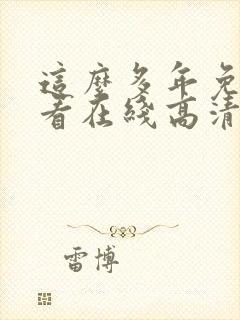 這麼多年免
看在綫高清
雷博